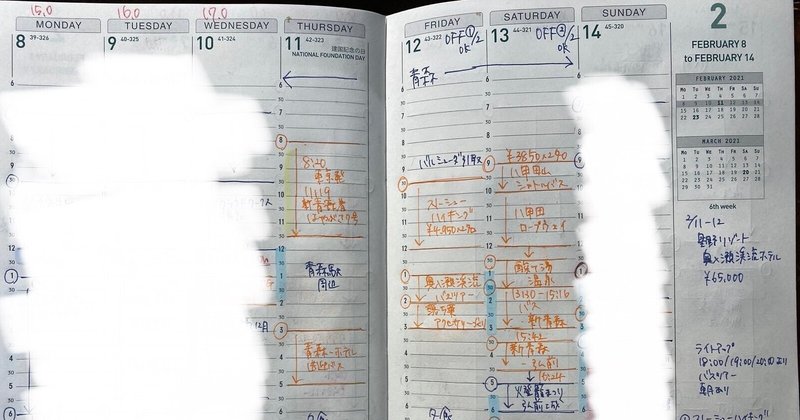 15.0
16.0
17.0
MONDAY
TUESDAY
WEDNESDAY
THURSDAY
8 39-326
9 40-325
10 41-324
11 42-323
建国記念の日
NATIONAL FOUNDATION DAY
8:20
東京発
11:19
新青森着
はやぶさ7号
青森駅
周辺
青森→ホテル
送迎バス
FRIDAY
SATURDAY
SUNDAY
12 43-322
OFF① 1/2
OK
13 44-321
OFF② 1/2
OK
14 45-320
青森
スノーシュー
ハイキング
¥4,950×2名
奥入瀬渓流
バスツアー
¥3850×2名
八甲田山
シャトルバス
八甲田
ロープウェイ
酸ヶ湯
温泉
13:30-15:16
バス
新青森
15:42
新青森
弘前
火登籠まつり
弘前公園
2
FEBRUARY 8
to FEBRUARY 14
FEBRUARY 2021
Mo Tu We Th Fr Sa Su
1 2 3 4 5 6 7
8 9 10 11 12 13 14
15 16 17 18 19 20 21
22 23 24 25 26 27 28
MARCH 2021
Mo Tu We Th Fr Sa Su
1 2 3 4 5 6 7
8 9 10 11 12 13 14
15 16 17 18 19 20 21
22 23 24 25 26 27 28
29 30 31
6th week
2/11-12
星野リゾート
奥入瀬渓流ホテル
¥65,000
ライトアップ
18:00/19:00/20:00より
バスツアー
① スノーシューハイキング